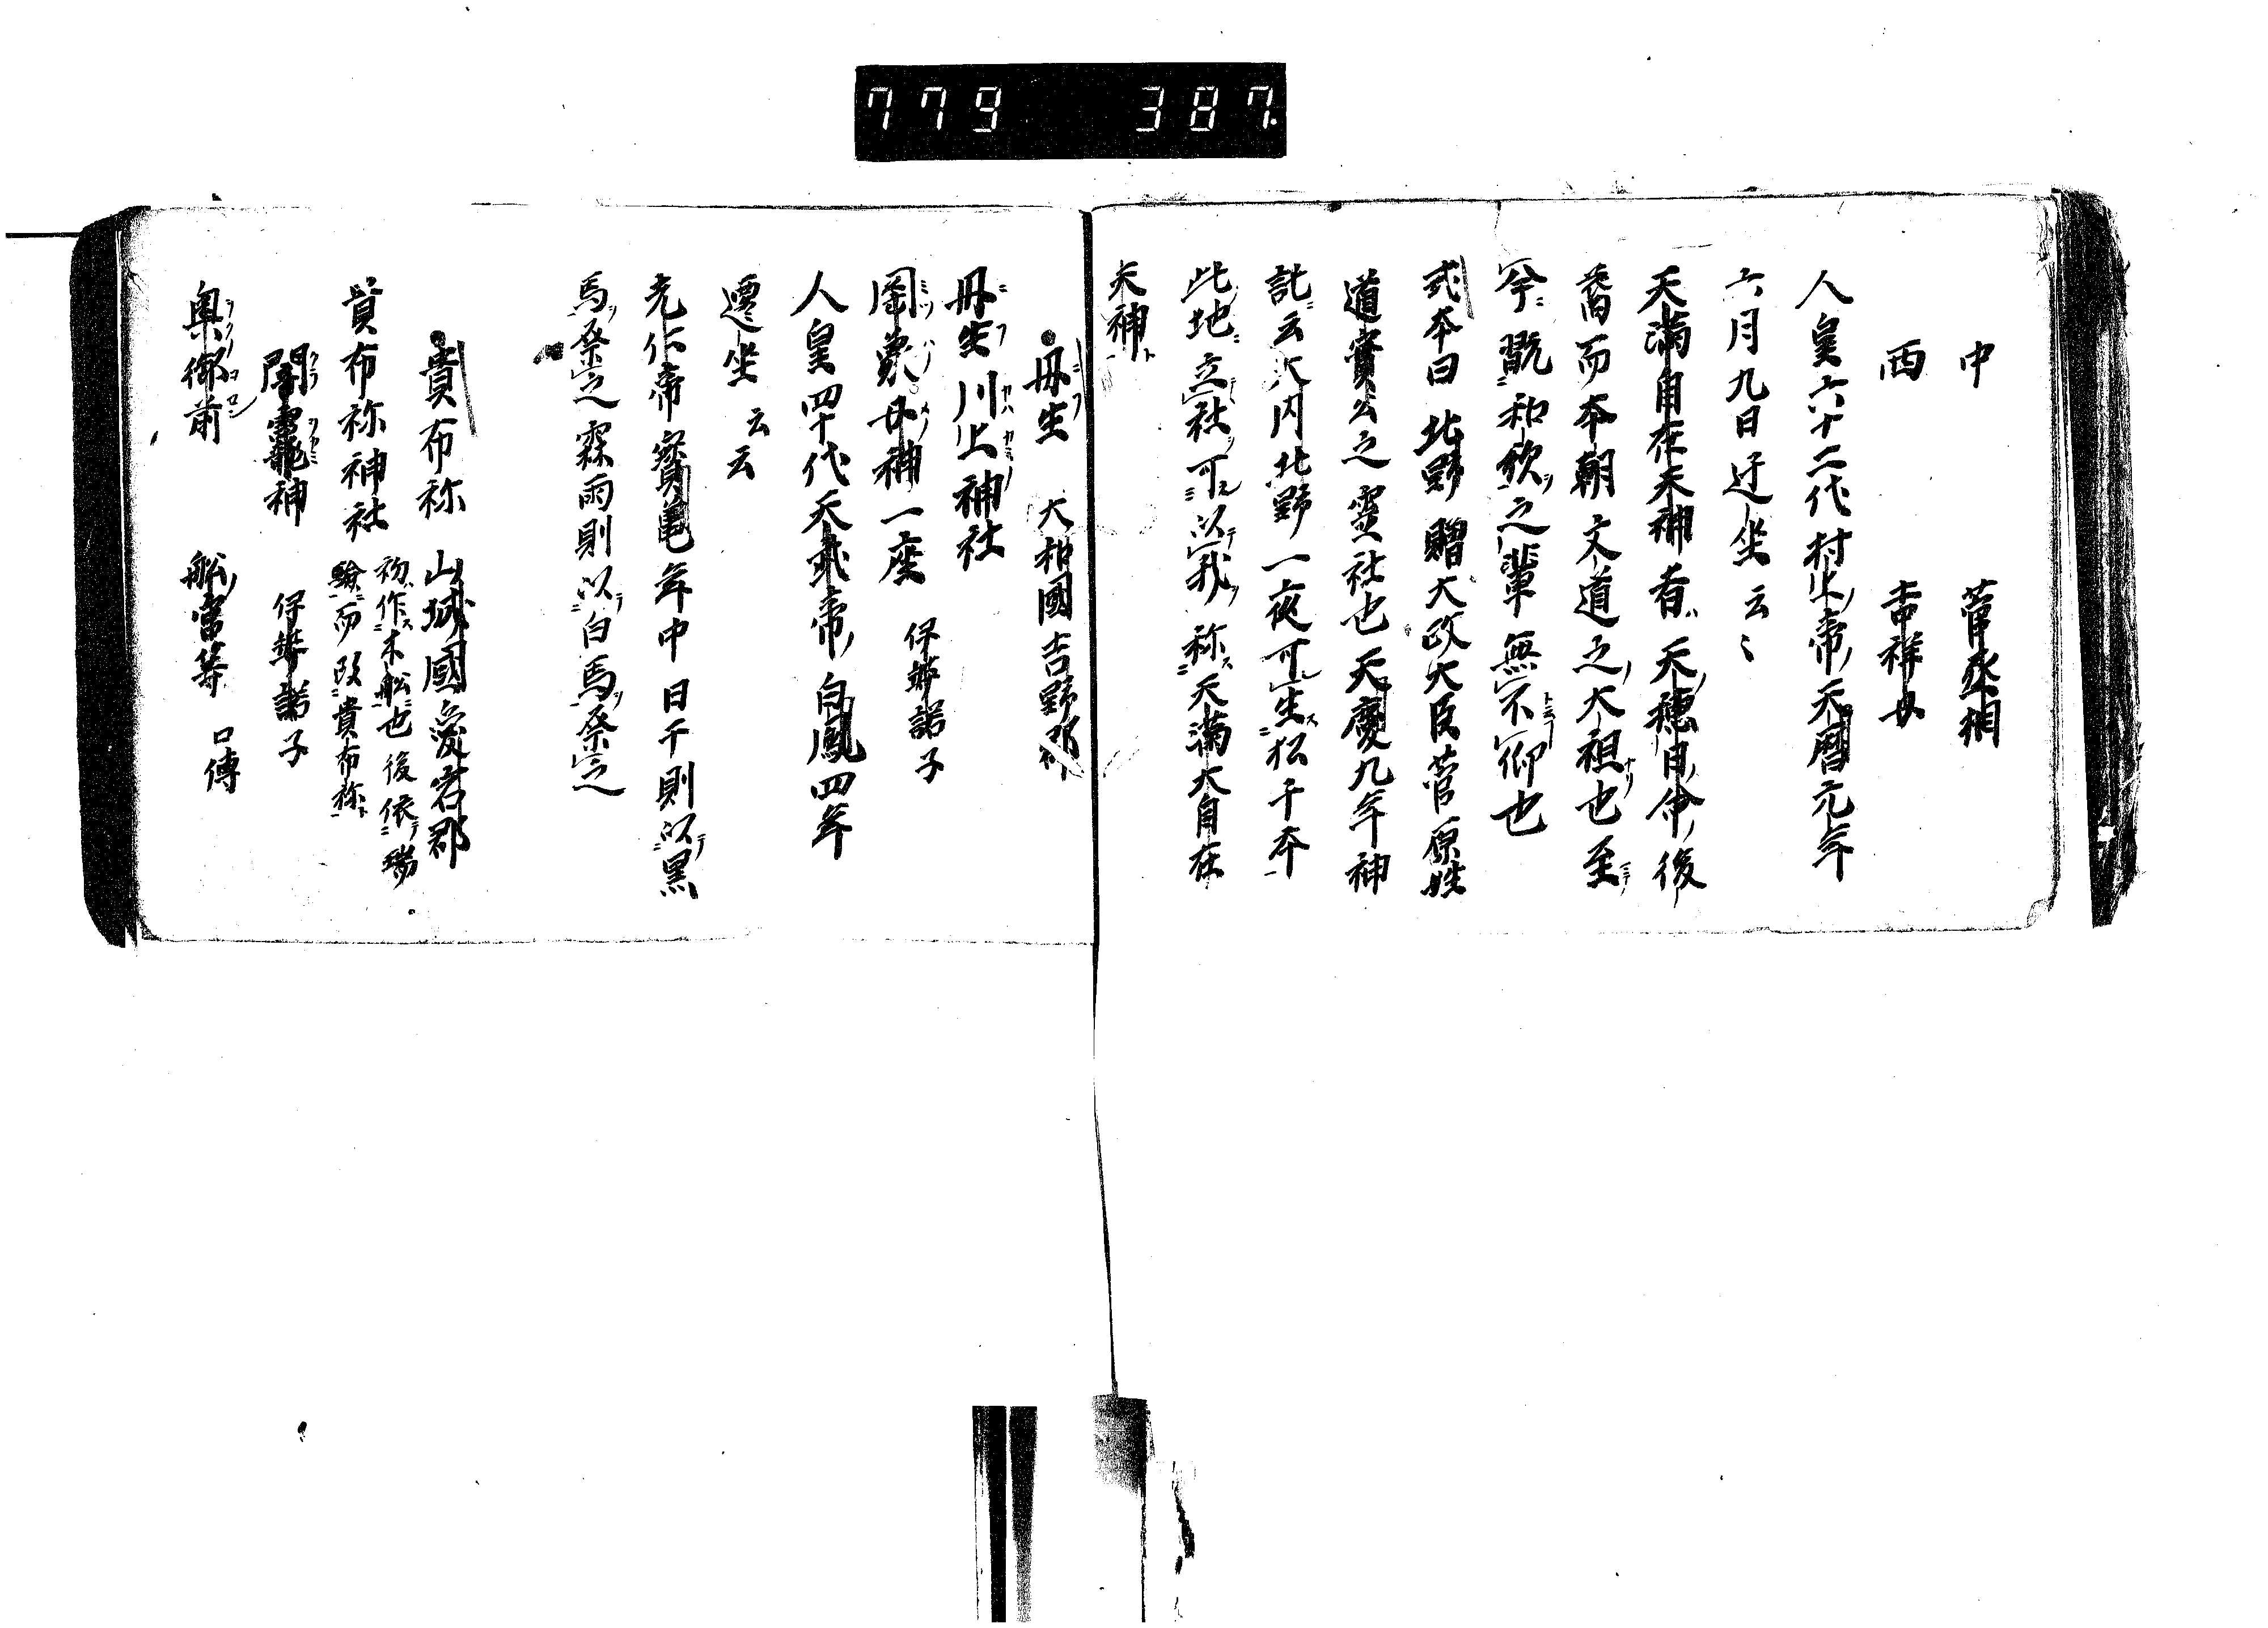 779 387.
中 菅丞相
西 吉祥女
人皇六十二代村上帝天暦元年
六月九日迁坐云〻
天満自在天神者天穂日命後
裔而本朝文道之大祖也至
兮翫和歌之輩無不仰也
式本曰北野贈大政大臣菅原姓
道實公之霊社也天慶九年神
託云大内北野一夜可生松千本
此地立社可以我称天満大自在
天神
丹生 大和國吉野郡
丹生川上神社
罔象女神一座 伊弉諾子
人皇四十代天武帝白鳳四年
遷坐云云
光仁帝寳亀年中日干則以黒
馬祭之霖雨則以白馬祭之
貴布祢 山城國愛宕郡
貴布祢神社 初作木舩也後依瑞
験而改貴布祢
闇龗神 伊弉諾子
奥御前 舩宮等 口傳